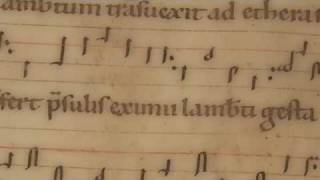 ambtum trasuexit ad ethera
fert p̄sulis eximii lamb̄ti gesta